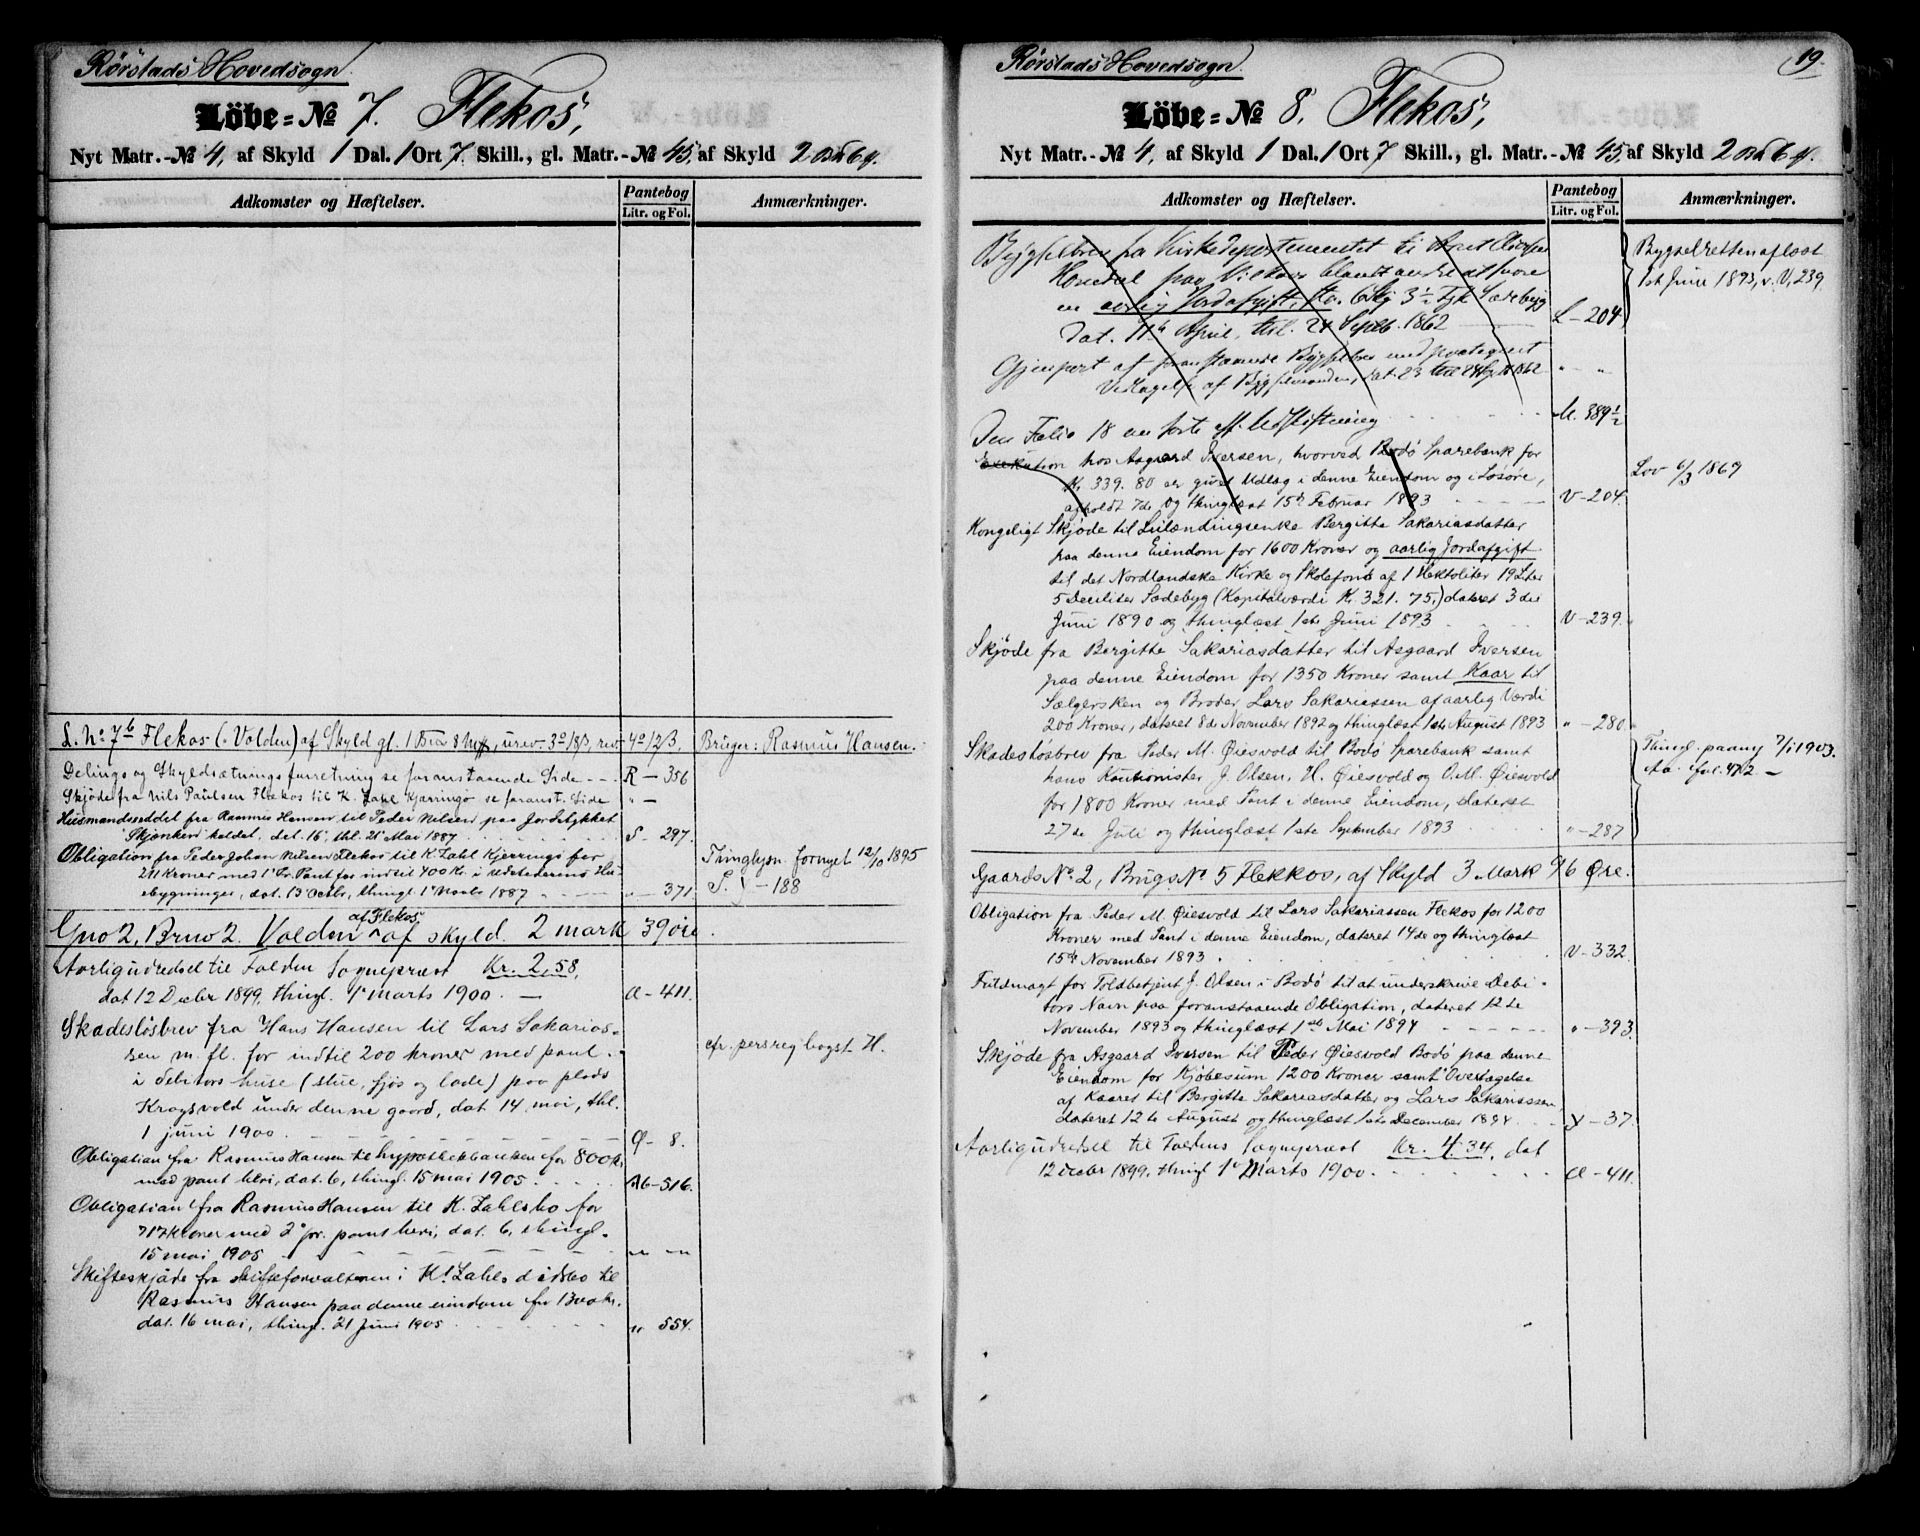 Rørstads Hovedsogn
Löbe-No 7. Flekos,
Nyt Matr.-No 4, af Skyld 1 Dal. 1 Ort 7. Skill., gl. Matr.-No 45, af Skyld 2
Adkomster og Hæftelser.
Pantebog
Litr. og Fol.
Anmærkninger.
L. No 7b Flekos (: Volden) af Skyld gl. 1 8 urev. 3 rev.
Bruger: Rasmus Hansen.
Delings og Skyldsætningsforretning se foranstaaende Side R - 356
Skjøde fra Nils Paulsen Flekos til K. Zahl Kjerringø se foranst. Side " -
Husmandsseddel fra Rasmus Hansen til Peder Nilsen paa Jordstykket
Skjønken kaldet, dat. 16, thl. 21 Mai 1887 S - 297.
Obligation fra Peder Johan Nilsen Flekos til K. Zahl Kjerringø for
211 Kroner med 1 Pr. Pant for indtil 400 Kr. i
bygninger, dat. 13 Octbr, thingl. 1 Marts 1887 " - 371
Thinglysn. fornyet 12/10 1895
S. V - 188
Gno 2, Brno 2. Volden af Flekos af skyld 2 mark 39 øre.
Aarlig udredsel til Folden Sognepræst Kr. 2,58,
dat 12 Decbr 1899, thingl. 1 Marts 1900. - a - 411.
Skadesløsbrev fra Hans Hansen til Lars Sakarias-
sen m. fl. for indtil 200 kroner med pant
i debitors huse (stue, fjøs og lade) paa plads
Kragsvold under denne gaard, dat 14. mai, thl.
1 juni 1900. Ø - 8.
cfr. persreg bogst H.
Obligation fra Rasmus Hansen til hypothekbanken for 800 kr.
med pant heri, dat. 6, thingl. 15 mai 1905 Æ - 516.
Obligation fra Rasmus Hansen til K. Zahls bo for
717 kroner med 2 pr. pant heri, dat. 6, thingl.
15 mai 1905 " - "
Skifteskjøde fra skifteforvalteren i K. Zahls dødsbo til
Rasmus Hansen paa denne eiendom for 1300 kr.
dat. 16 mai, thingl. 21 Juni 1905 " 554.
Rørstads Hovedsogn. 19.
Löbe-No 8. Flekos,
Nyt Matr.-No 4, af Skyld 1 Dal. 1 Ort 7 Skill., gl. Matr.-No 45, af Skyld 2
Adkomster og Hæftelser.
Pantebog
Litr. og Fol.
Anmærkninger.
Bygselbrev fra Kirkedepartementet til
paa Vilkaar blandt andet at svare
en aarlig Jordafgift, 6 Skj 3 1/2
dat. 11 April, thl. 24 Septb. 1862 L - 204
Bygselretten aflæst
1st Juni 1893, v. V, 239.
Gjenpart af foranstaaende Bygselbrev med paategnet
Vedtagelse af Bygselmanden, dat. 23 1862 " - "
Den Folio 18 anførte Udskiftning M. 389 1/2
Exekution hos Asgaard Iversen, hvorved Bodø Sparebank for
Kr. 339. 80 er givet Udlæg i denne Eiendom og i Løsøre,
afholdt 7de og thinglæst 15de Februar 1893 V - 204.
Lov 6/3 1869
Kongeligt Skjøde til Leilændingsenke Bergitte Sakariasdatter
paa denne Eiendom for 1600 Kroner og aarlig Jordafgift
til det Nordlandske Kirke og Skolefond af 1 Hektoliter 19 Liter
5 Deciliter Sædebyg (Kapitalværdi Kr. 321. 75.) dateret 3die
Juni 1890 og thinglæst 1ste Juni 1893 V - 239.
Skjøde fra Bergitte Sakariasdatter til Asgaard Iversen
paa denne Eiendom for 1350 Kroner samt Kaar til
Sælgersken og Broder Lars Sakariassen af aarlig Værdi
200 Kroner, dateret 8de November 1892 og thinglæst 1ste August 1893 " - 280.
Skadesløsbrev fra Peder M. Øiesvold til Bodø Sparebank samt
hans Kautionister J. Olsen, H. Øiesvold og O. M. Øiesvold
for 1800 Kroner med Pant i denne Eiendom, dateret
27de Juli og thinglæst 1ste September 1893 " - 287
Thingl. paany 7/1 1903.
Aa. fol. 472 -
Gaards No 2, Brugs No 5 Flekkos, af Skyld 3 Mark 96 Øre.
Obligation fra Peder M. Øiesvold til Lars Sakariassen Flekos for 1200
Kroner med Pant i denne Eiendom, dateret 14de og thinglæst
15de November 1893 V - 332.
Fuldmagt for Toldbetjent J. Olsen i Bodø til at underskrive Debi-
tors Navn paa foranstaaende Obligation, dateret 12te
November 1893 og thinglæst 1ste Mai 1894 " - 393.
Skjøde fra Asgaard Iversen til Peder Øiesvold Bodø paa denne
Eiendom for Kjøbesum 1200 Kroner samt Overtagelse
af Kaaret til Bergitte Sakariasdatter og Lars Sakariassen,
dateret 12te August og thinglæst 1ste December 1894 X - 37.
Aarlig udredsel til Foldens Sognepræst Kr. 4.34, dat
12 decbr 1899, thingl 1 Marts 1900. a - 411.